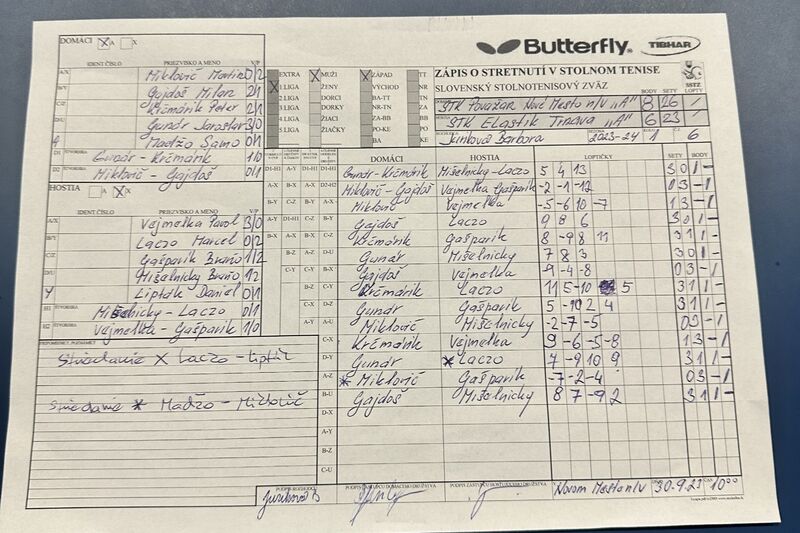 DOMÁCI X A X
Butterfly TIBHAR
IDENT ČÍSLO PRIEZVISKO A MENO V/P
ZÁPIS O STRETNUTÍ V STOLNOM TENISE
SLOVENSKÝ STOLNOTENISOVÝ ZVÄZ
BODY SETY LOPTY
SSTZ
A/X Miklovič Martin 0/2
B/Y Gajdoš Milan 2/1
C/Z Krčmárik Peter 2/1
D/U Gunár Jaroslav 3/0
Madžo Samo 0/1
D1 ŠTVORHRA Gunár - Krčmárik 1/0
D2 Miklovič - Gajdoš 0/1
EXTRA X MUŽI X ZÁPAD TT
X I LIGA ŽENY VÝCHOD NR
II LIGA DORCI BA-TT TN
III LIGA DORKY NR-TN ZA
IV LIGA ŽIACI ZA-BB BB
V LIGA ŽIAČKY PO-KE PO
BA KE
STK Považan Nové Mesto n/V "A" 8 26
STK ELastik Trnava "A" 6 23
Barbora 2023-24 1 6
HOSTIA A X X
IDENT ČÍSLO PRIEZVISKO A MENO V/P
A/X Vejmelka Pavol 3/0
B/Y Laczo Marcel 0/2
C/Z Gašparik Bruno 1/2
D/U Mišelnicky Bruno 1/2
Y Lipták Daniel 0/1
H1 ŠTVORHRA Mišelnicky - Laczo 0/1
H2 Vejmelka - Gašparik 1/0
DOMÁCI HOSTIA LOPTIČKY SETY BODY
D1-H1 Gunár - Krčmárik Mišelnicky - Laczo 5 4 13 3 0 1 -
Miklovič - Gajdoš Vejmelka Gašparik -2 -1 -12 0 3 - 1
Miklovič Vejmelka -5 -6 10 -7 1 3 - 1
Gajdoš Laczo 9 8 6 3 0 1 -
Krčmárik Gašparik 8 -9 8 11 3 1 1 -
Gunár Mišelnicky 7 8 3 3 0 1 -
Gajdoš Vejmelka -9 -4 -8 0 3 - 1
Krčmárik Laczo 11 5 -10 5 3 1 1 -
Gunár Gašparik 5 -10 2 4 3 1 1 -
Miklovič Mišelnicky -2 -7 -5 0 3 - 1
C-X Krčmárik Vejmelka 9 -6 -5 -8 1 3 - 1
D-Y Gunár * Laczo 7 -9 10 9 3 1 1 -
A-Z * Miklovič Gašparik -7 -2 -4 0 3 - 1
B-U Gajdoš Mišelnicky 8 7 -9 2 3 1 1 -
D-X
A-Y
B-Z
C-U
PRIPOMIENKY, POZNÁMKY
Striedanie X Laczo - Lipták
Striedanie * Madžo - Miklovič
PODPIS ROZHODCU PODPIS ZÁSTUPCU DOMÁCEHO DRUŽSTVA PODPIS ZÁSTUPCU HOSŤUJÚCEHO DRUŽSTVA
V Novom Meste n/V 30.9.23 ČAS 10:00